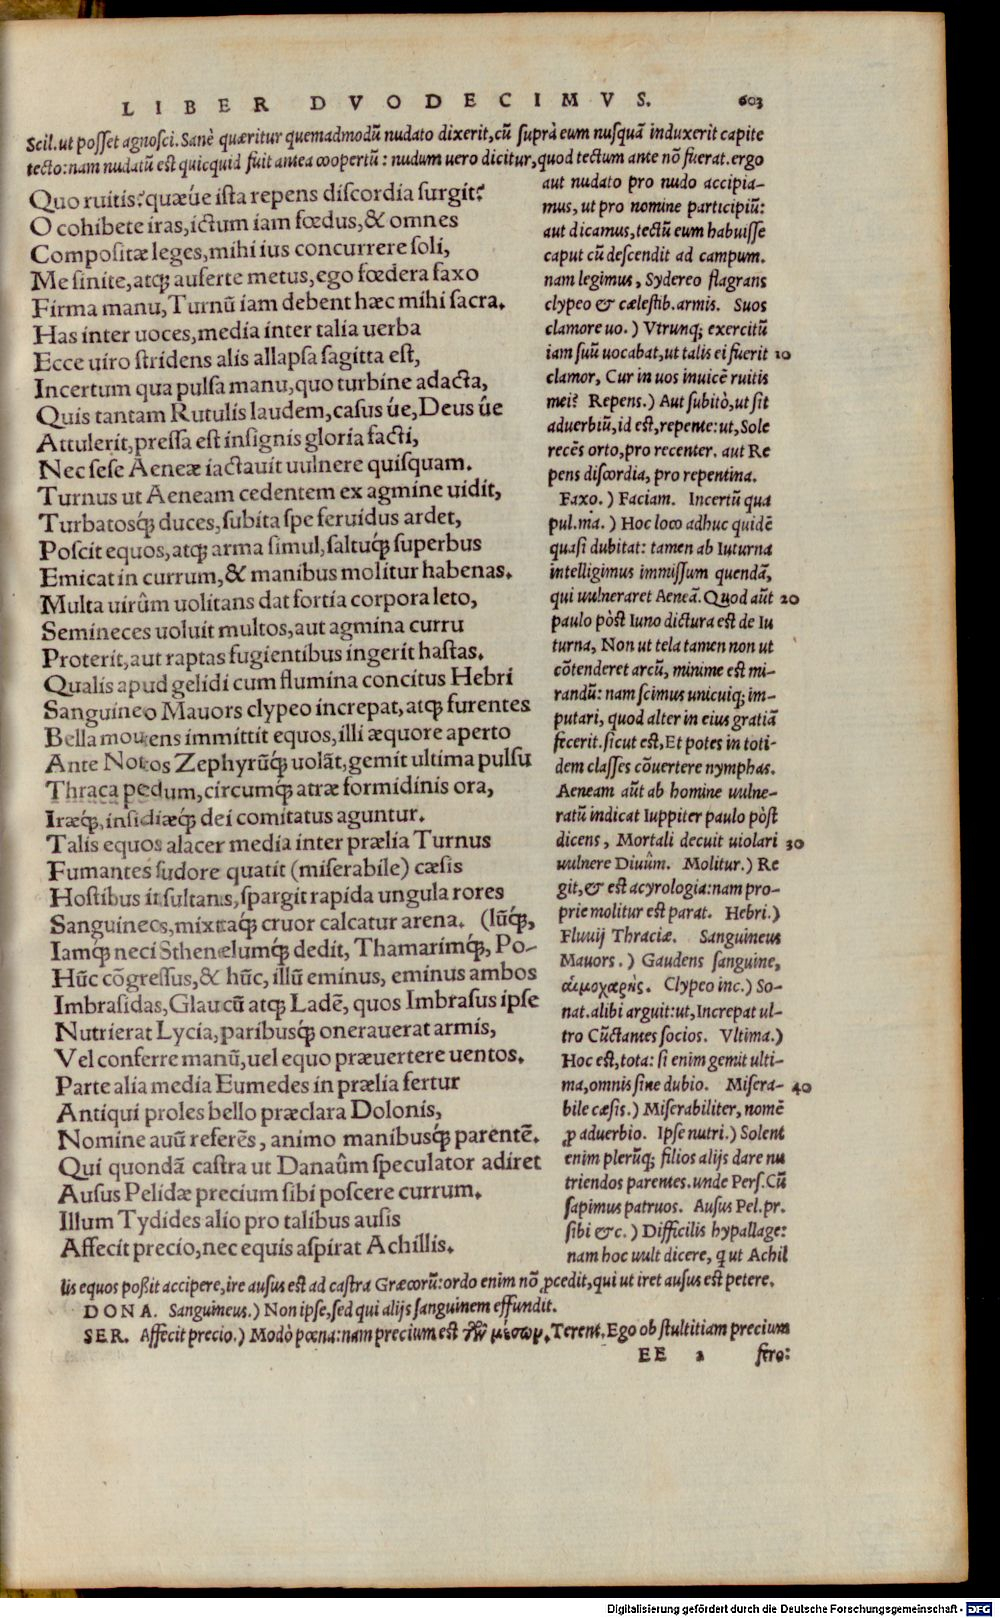 LIBER DVODECIMVS. 603
Scil. ut posset agnosci. Sanè quæritur quemadmodũ nudato dixerit, cũ suprà eum nusquã induxerit capite
tecto: nam nudatũ est quicquid fuit antea coopertũ: nudum uero dicitur, quod tectum ante nõ fuerat. ergo
Quo ruitis? quæ úe ista repens discordia surgit?
O cohibete iras, ictum iam fœdus, & omnes
Compositæ leges, mihi ius concurrere soli,
Me sinite, atq; auferte metus, ego fœdera faxo
Firma manu, Turnũ iam debent hæc mihi sacra.
Has inter uoces, media inter talia uerba
Ecce uiro stridens alis allapsa sagitta est,
Incertum qua pulsa manu, quo turbine adacta,
Quis tantam Rutulis laudem, casus úe, Deus úe
Attulerit, pressa est insignis gloria facti,
Nec sese Aeneæ iactauit uulnere quisquam.
Turnus ut Aeneam cedentem ex agmine uidit,
Turbatosq́; duces, subita spe feruidus ardet,
Poscit equos, atq; arma simul, saltuq́; superbus
Emicat in currum, & manibus molitur habenas.
Multa uirûm uolitans dat fortia corpora leto,
Semineces uoluit multos, aut agmina curru
Proterit, aut raptas fugientibus ingerit hastas.
Qualis apud gelidi cum flumina concitus Hebri
Sanguineo Mauors clypeo increpat, atq; furentes
Bella mouens immittit equos, illi æquore aperto
Ante Notos Zephyrũq́; uolãt, gemit ultima pulsu
Thraca pedum, circumq́; atræ formidinis ora,
Iræq́;, insidiæq́; dei comitatus aguntur.
Talis equos alacer media inter prælia Turnus
Fumantes sudore quatit (miserabile) cæsis
Hostibus insultans, spargit rapida ungula rores
Sanguineos, mixtaq́; cruor calcatur arena. (lũq́;,
Iamq́; neci Sthenelumq́; dedit, Thamarimq́;, Po-
Hũc cõgressus, & hũc, illũ eminus, eminus ambos
Imbrasidas, Glaucũ atq; Ladẽ, quos Imbrasus ipse
Nutrierat Lycia, paribusq́; onerauerat armis,
Vel conferre manũ, uel equo præuertere uentos.
Parte alia media Eumedes in prælia fertur
Antiqui proles bello præclara Dolonis,
Nomine auũ referẽs, animo manibusq́; parentẽ.
Qui quondã castra ut Danaûm speculator adiret
Ausus Pelidæ precium sibi poscere currum.
Illum Tydides alio pro talibus ausis
Affecit precio, nec equis aspirat Achillis.
aut nudato pro nudo accipia-
mus, ut pro nomine participiũ:
aut dicamus, tectũ eum habuisse
caput cũ descendit ad campum.
nam legimus, Sydereo flagrans
clypeo & cælestib. armis. Suos
clamore uo.) Vtrunq; exercitũ
iam suũ uocabat, ut talis ei fuerit 10
clamor, Cur in uos inuicẽ ruitis
mei? Repens.) Aut subitò, ut sit
aduerbiũ, id est, repente: ut, Sole
recẽs orto, pro recenter. aut Re
pens discordia, pro repentina.
Faxo.) Faciam. Incertũ qua
pul.ma.) Hoc loco adhuc quidẽ
quasi dubitat: tamen ab Iuturna
intelligimus immissum quendã,
qui uulneraret Aeneã. Quod aũt 20
paulo pòst Iuno dictura est de Iu
turna, Non ut tela tamen non ut
cõtenderet arcũ, minime est mi-
randũ: nam scimus unicuiq; im-
putari, quod alter in eius gratiã
fecerit. sicut est, Et potes in toti-
dem classes cõuertere nymphas.
Aeneam aũt ab homine uulne-
ratũ indicat Iuppiter paulo pòst
dicens, Mortali decuit uiolari 30
uulnere Diuûm. Molitur.) Re
git, & est acyrologia: nam pro-
prie molitur est parat. Hebri.)
Fluuij Thraciæ. Sanguineus
Mauors.) Gaudens sanguine,
αἱμοχαρής. Clypeo inc.) So-
nat. alibi arguit: ut, Increpat ul-
tro Cũctantes socios. Vltima.)
Hoc est, tota: si enim gemit ulti-
ma, omnis sine dubio. Misera- 40
bile cæsis.) Miserabiliter, nomẽ
ꝓ aduerbio. Ipse nutri.) Solent
enim plerũq; filios alijs dare nu
triendos parentes. unde Pers. Cũ
sapimus patruos. Ausus Pel.pr.
sibi &c.) Difficilis hypallage:
nam hoc uult dicere, q ut Achil
lis equos poßit accipere, ire ausus est ad castra Græcorũ: ordo enim nõ ꝓcedit, qui ut iret ausus est petere.
DONA. Sanguineus.) Non ipse, sed qui alijs sanguinem effundit.
SER. Affecit precio.) Modò pœna: nam precium est τῶν μέσων. Terent. Ego ob stultitiam precium
EE 2 fero:
Digitalisierung gefördert durch die Deutsche Forschungsgemeinschaft - DFG